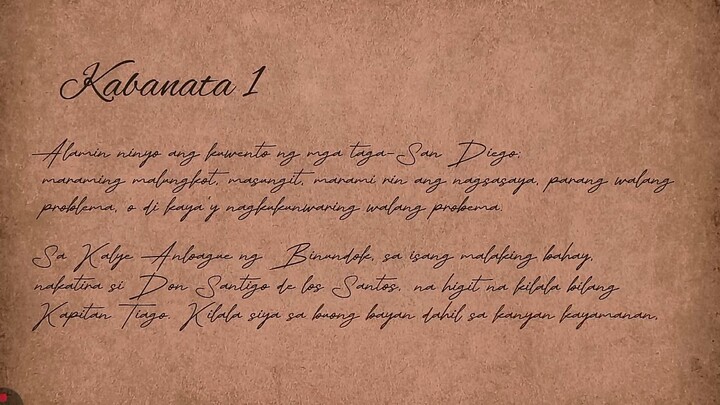 Kabanata 1
Alamin ninyo ang kuwento ng mga taga-San Diego;
maraming malungkot, masungit, marami rin ang nagsasaya, parang walang
problema, o di kaya'y nagkukunwaring walang probema.
Sa Kalye Anloague ng Binundok, sa isang malaking bahay,
nakatira si Don Santigo de los Santos, na higit na kilala bilang
Kapitan Tiago. Kilala siya sa buong bayan dahil sa kanyan kayamanan.